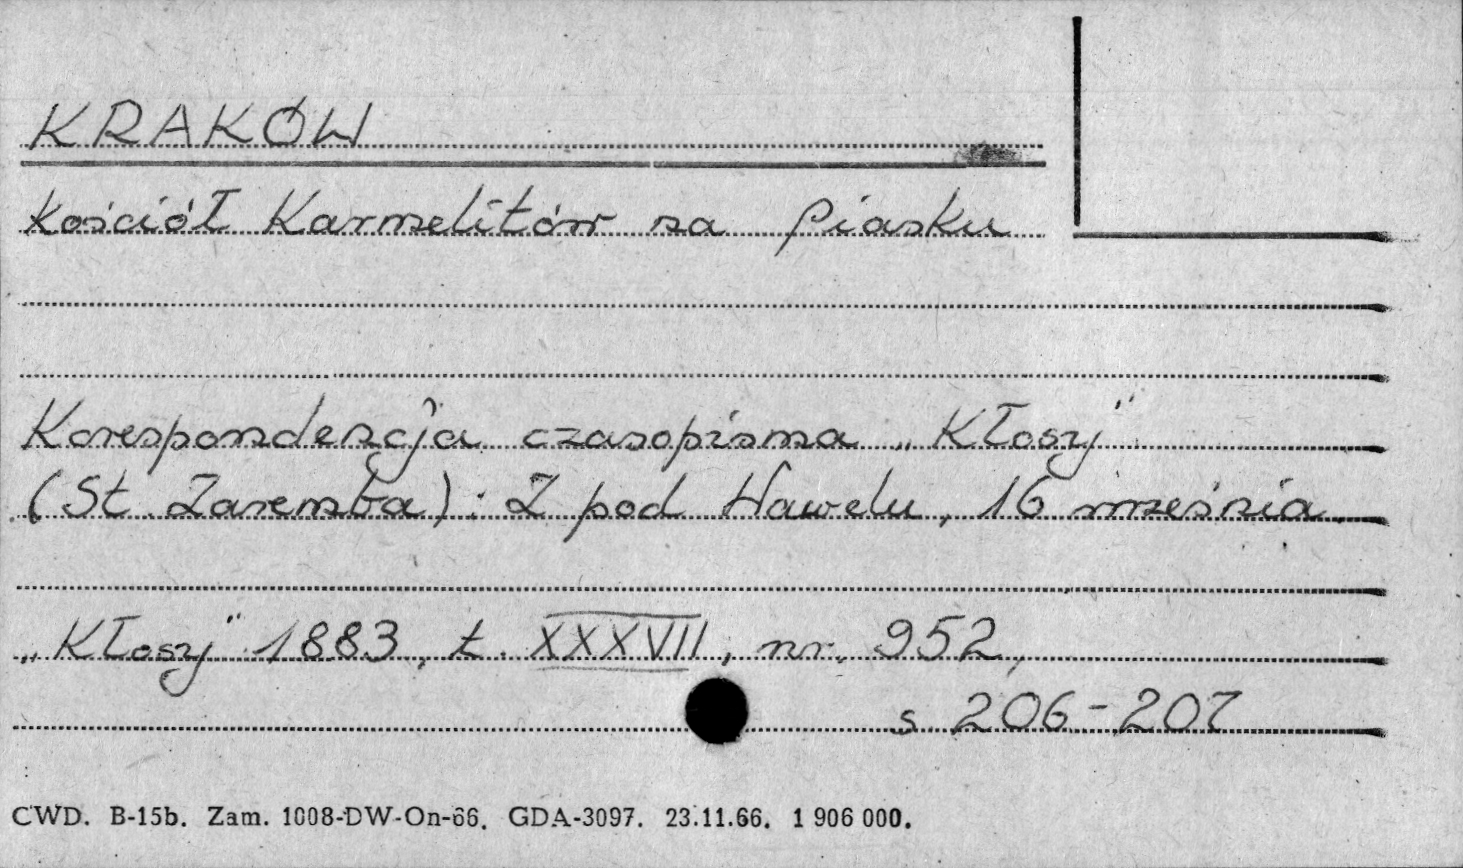 KRAKÓW
Kościół Karmelitów na Piasku
Korespondencja czasopisma „Kłosy”
(St. Zaremba): Z pod Wawelu, 16 września.
„Kłosy” 1883, t. XXXVII, nr. 952,
s. 206-207
CWD. B-15b. Zam. 1008-DW-On-66. GDA-3097. 23.11.66. 1 906 000.